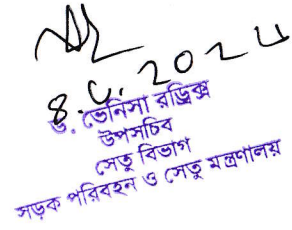 8.০.2024
ড. ভেনিসা রড্রিক্স
উপসচিব
সেতু বিভাগ
সড়ক পরিবহন ও সেতু মন্ত্রণালয়